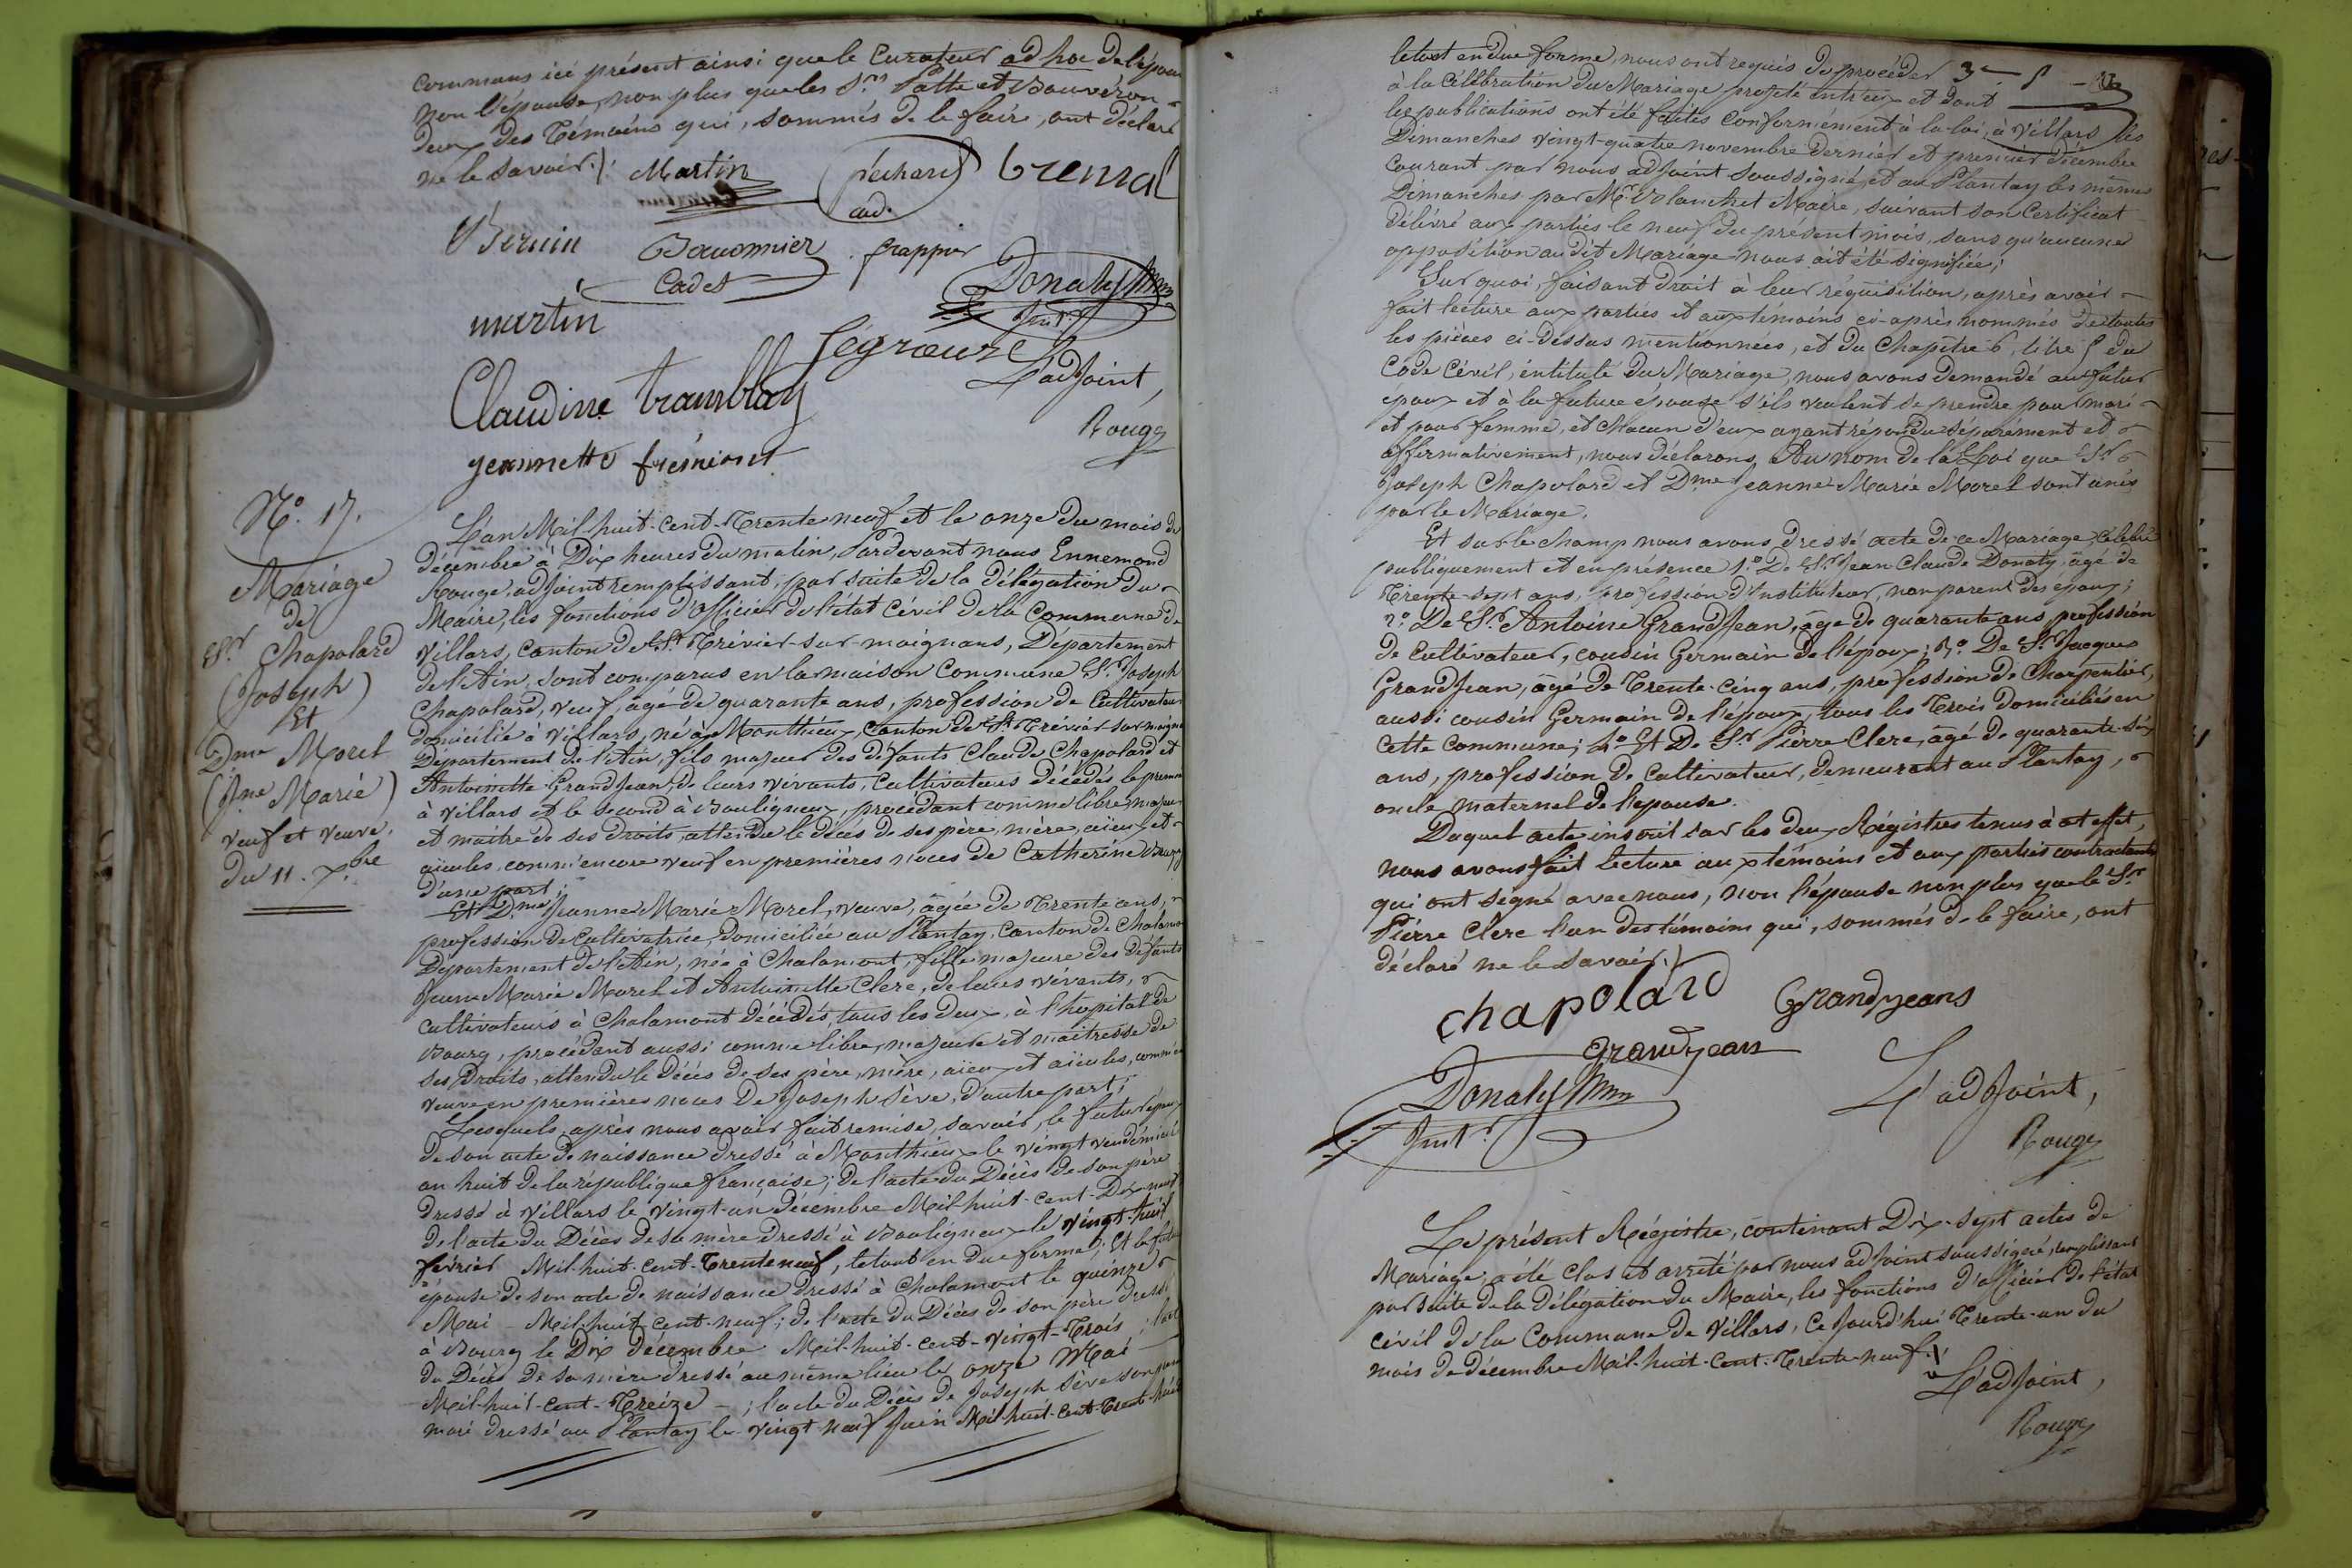 communs ici présent ainsi que le Curateur ad hoc de l'épou
non l'épouse, non plus que les Srs Patte et Bouvéron
deux des Témoins qui, sommés de le faire, ont déclaré
ne le savoir ./.
Martin
péchard
cad.
Grenral
Bernin
Bauonnier
Cadet
frappier
Donaty
Instr
martin
Ségroeure
L'adjoint,
Claudine tramblay
Rouge
jeannette frémiont
N.° 17.
Mariage
de
Sr Chapolard
(Joseph)
Et
Dme Morel
(Jne Marie)
veuf et veuve.
du 11. Xbre
L'an Mil-huit-cent-Trente neuf et le onze du mois de
décembre à Dix heures du matin, Pardevant nous Ennemond
Rouge, adjoint remplissant, par suite de la délégation du
Maire, les fonctions d'officier de l'état civil de la Commune de
Villars, canton de St Trivier-sur-moignans, Département
de l'Ain, sont comparus en la maison Commune Sr Joseph
Chapolard, veuf, âgé de quarante ans, profession de Cultivateur
domicilié à Villars, né à Monthieux, Canton de St Trévier sur moigna
Département de l'Ain, fils majeur des défunts Claude Chapolard et
Antoinette Grandjean, de leurs vivants, Cultivateurs décédés le premier
à Villars et le second à Bouligneux, procédant comme libre, majeur
et maitre de ses droits, attendu le décès de ses père, mère, aïeux et
aïeules, comm'encore veuf en premières noces de Catherine
d'une part;
Et Dme Jeanne Marie Morel, veuve, âgée de Trente ans,
profession de cultivatrice, domiciliée au Plantay, canton de Chalamo
Département de l'Ain, née à Chalamont, fille majeure des défunts
Jeune Marie Morel et Antoinette Clerc, de leurs vivants,
cultivateurs à Chalamont décédés, tous les deux, à l'hopital de
Bourg, procédant aussi comme libre, majeure et maitresse de
ses Droits, attendu le décès de ses père, mère, aïeux et aïeules, comme
veuve en premières noces de Joseph Sève, d'autre part;
Lesquels, après nous avoir fait remise, savoir, le futur époux
de son acte de naissance dressé à Monthieux le vingt vendémiaire
an huit de la république française; de l'acte du Décès de son père
dressé à Villars le vingt-un décembre Mil-huit-cent-Dix-neuf
de l'acte du Décès de sa mère dressé à Bouligneux le vingt-huit
février Mil-huit-Cent-Trente neuf, le tout en due forme; Et la future
épouse de son acte de naissance dressé à Chalamont le quinze
Mai Mil-huit cent-neuf; de l'acte du Décès de son père dressé
à Bourg le Dix décembre Mil-huit-cent-vingt-Trois; l'act
du Décès de sa mère dressé au même lieu le onze Mai
Mil-huit-cent-Treize - ; l'acte du Décès de Joseph Sève son
mari dressé au Plantay le vingt-neuf Juin Mil-huit-Cent-Trente-huit
le tout en due forme, nous ont requis de procéder
à la célébration du Mariage projeté entr'eux et dont
les publications ont été faites conformément à la loi, à Villars les
Dimanches vingt-quatre novembre dernier et premier décembre
courant par nous adjoint soussigné, et au Plantay les mêmes
Dimanches par Mr Volanchet Maire, suivant son Certificat
délivré aux parties le neuf du présent mois, sans qu'aucune
opposition audit Mariage nous ait été signifiée;
Sur quoi, faisant Droit à leur réquisition, après avoir
fait lecture aux parties et aux témoins ci-après nommés de toutes
les pièces ci-dessus mentionnées, et du Chapitre 6, titre 5 du
Code Civil, intitulé du Mariage, nous avons demandé au futur
époux et à la future épouse s'ils veulent se prendre pour mari
et pour femme, et chacun d'eux ayant répondu séparément et
affirmativement, nous déclarons, Au nom de la Loi que Sr
Joseph Chapolard et Dme Jeanne-Marie Morel sont unis
par le Mariage.
Et sur le champ nous avons dressé acte de ce Mariage, Célébré
publiquement et en présence 1.° De Sr Jean Claude Donaty, âgé de
Trente-sept ans, profession d'Instituteur, non parent des époux;
2.° De Sr Antoine Grandjean, âgé de quarante ans profession
de cultivateur, cousin Germain de l'époux; 3.° De Sr Jacques
Grandjean, âgé de Trente-cinq ans, profession de Charpentier,
aussi cousin Germain de l'époux, tous les Trois domiciliés en
cette commune; 4.° Et De Sr Pierre Clerc, âgé de quarante-six
ans, profession de Cultivateur, demeurant au Plantay,
oncle maternel de l'épouse.
Duquel acte inscrit sur les deux Régistres tenus à cet effet,
nous avons fait lecture aux témoins et aux parties contractantes
qui ont signé avec nous, non l'épouse non plus que le Sr
Pierre Clerc l'un des témoins qui, sommés de le faire, ont
déclaré ne le savoir ./.
chapolard
Grandjeans
Grandjean
Donaty
Instr
L'adjoint,
Rouge
Le présent Régistre, contenant Dix-sept actes de
Mariage, a été clos et arrêté par nous adjoint soussigné, remplissant
par suite de la délégation du Maire, les fonctions d'officier de l'état
civil de la Commune de Villars, ce jourd'hui Trente-un du
mois de décembre Mil-huit-Cent-Trente-neuf ./.
L'adjoint,
Rouge